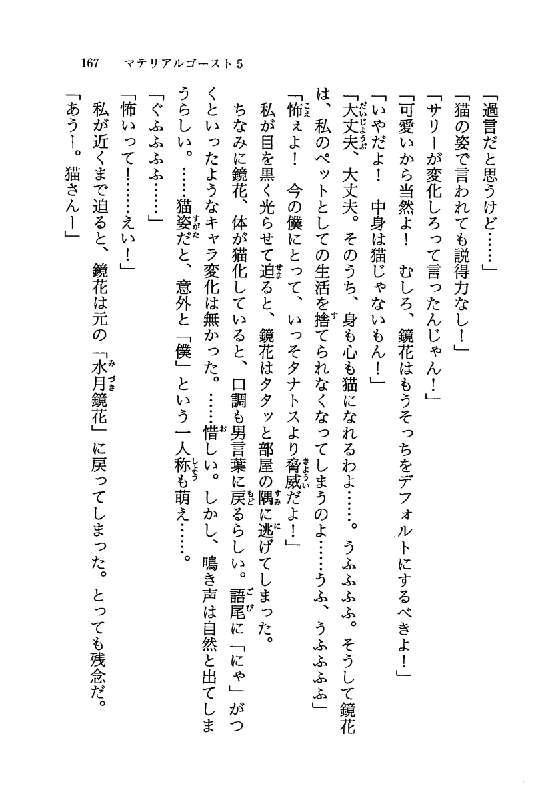 167 マテリアルゴースト5
「過言だと思うけど……」
「猫の姿で言われても説得力なし！」
「サリーが変化しろって言ったんじゃん！」
「可愛いから当然よ！　むしろ、鏡花はもうそっちをデフォルトにするべきよ！」
「いやだよ！　中身は猫じゃないもん！」
「大丈夫、大丈夫。そのうち、身も心も猫になれるわよ……。うふふふふ。そうして鏡花
は、私のペットとしての生活を捨てられなくなってしまうのよ……うふ、うふふふふ」
「怖ぇよ！　今の僕にとって、いっそタナトスより脅威だよ！」
　私が目を黒く光らせて迫ると、鏡花はタタッと部屋の隅に逃げてしまった。
　ちなみに鏡花、体が猫化していると、口調も男言葉に戻るらしい。語尾に「にゃ」がつ
くといったようなキャラ変化は無かった。……惜しい。しかし、鳴き声は自然と出てしま
うらしい。……猫姿だと、意外と「僕」という一人称も萌え……。
「ぐふふふふ……」
「怖いって！……えい！」
　私が近くまで迫ると、鏡花は元の「水月鏡花」に戻ってしまった。とっても残念だ。
「あうー。猫さんー」